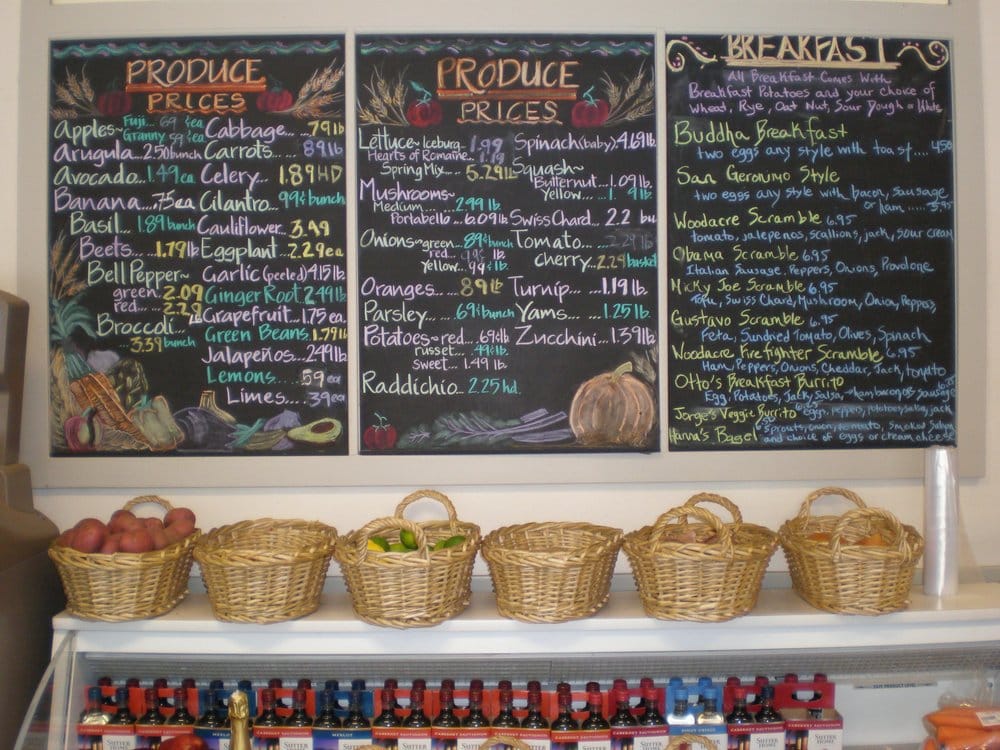 PRODUCE
PRICES
Apples~ Fuji... 69 ¢ea
Granny 59 ¢ea
Arugula... 2.50 bunch
Avocado... 1.49 ea
Banana... .75ea
Basil... 1.89 bunch
Beets... 1.79 lb
Bell Pepper~
green. 2.09
red... 2.29
Broccoli...
3.39 bunch
Cabbage... .79 lb
Carrots... .89 lb
Celery... 1.89 HD
Cilantro... 99¢ bunch
Cauliflower... 3.49
Eggplant... 2.29 ea
Garlic (peeled) 4.15 lb
Ginger Root 2.49 lb
Grapefruit... 1.75 ea.
Green Beans 1.79 lb
Jalapeños... 2.49 lb
Lemons..... .59 ea
Limes.... .39 ea.
PRODUCE
PRICES
Lettuce~ Iceburg... 1.99
Hearts of Romaine... 1.19
Spring Mix.... 5.29 lb
Mushrooms~
Medium... 2.99 lb
Portabello... 6.09 lb
Onions~ green... 89¢ bunch
red... 99¢ lb
Yellow... 99¢ lb.
Oranges... 89 lb
Parsley... 69¢ bunch
Potatoes~ red.. .69¢ lb
russet.. .49¢ lb.
sweet... 1.49 lb.
Raddichio... 2.25 hd.
Spinach (baby) 4.69 lb.
Squash~
Butternut... 1.09 lb.
Yellow...
Swiss Chard... 2.2 bu
Tomato... 2.29 lb
cherry... 2.29 basket
Turnip... 1.19 lb
Yams.... 1.25 lb.
Zucchini... 1.39 lb
BREAKFAST
All Breakfast Comes With
Breakfast Potatoes and your choice of
Wheat, Rye, Oat Nut, Sour Dough or White
Buddha Breakfast
two eggs any style with toast.... 4.50
San Geronimo Style
two eggs any style with bacon, sausage
or ham..... 5.95
Woodacre Scramble 6.95
tomato, jalepenos, scallions, jack, sour cream
Obama Scramble 6.95
Italian Sausage, Peppers, Onions, Provolone
Micky Joe Scramble 6.95
Tofu, Swiss Chard, Mushroom, Onion, Peppers
Gustavo Scramble 6.95
Feta, Sundried Tomato, Olives, Spinach
Woodacre Firefighter Scramble 6.95
Ham, Peppers, Onions, Cheddar, Jack, tomato
Otto's Breakfast Burrito
Egg, Potatoes, Jack, Salsa ham bacon or sausage
Jorge's Veggie Burrito eggs, peppers, potatoes, salsa, jack
Hanna's Bagel sprouts, onion, tomato, smoked Salmon
and choice of eggs or cream cheese
SUTTER
HOME
CABERNET SAUVIGNON
MERLOT